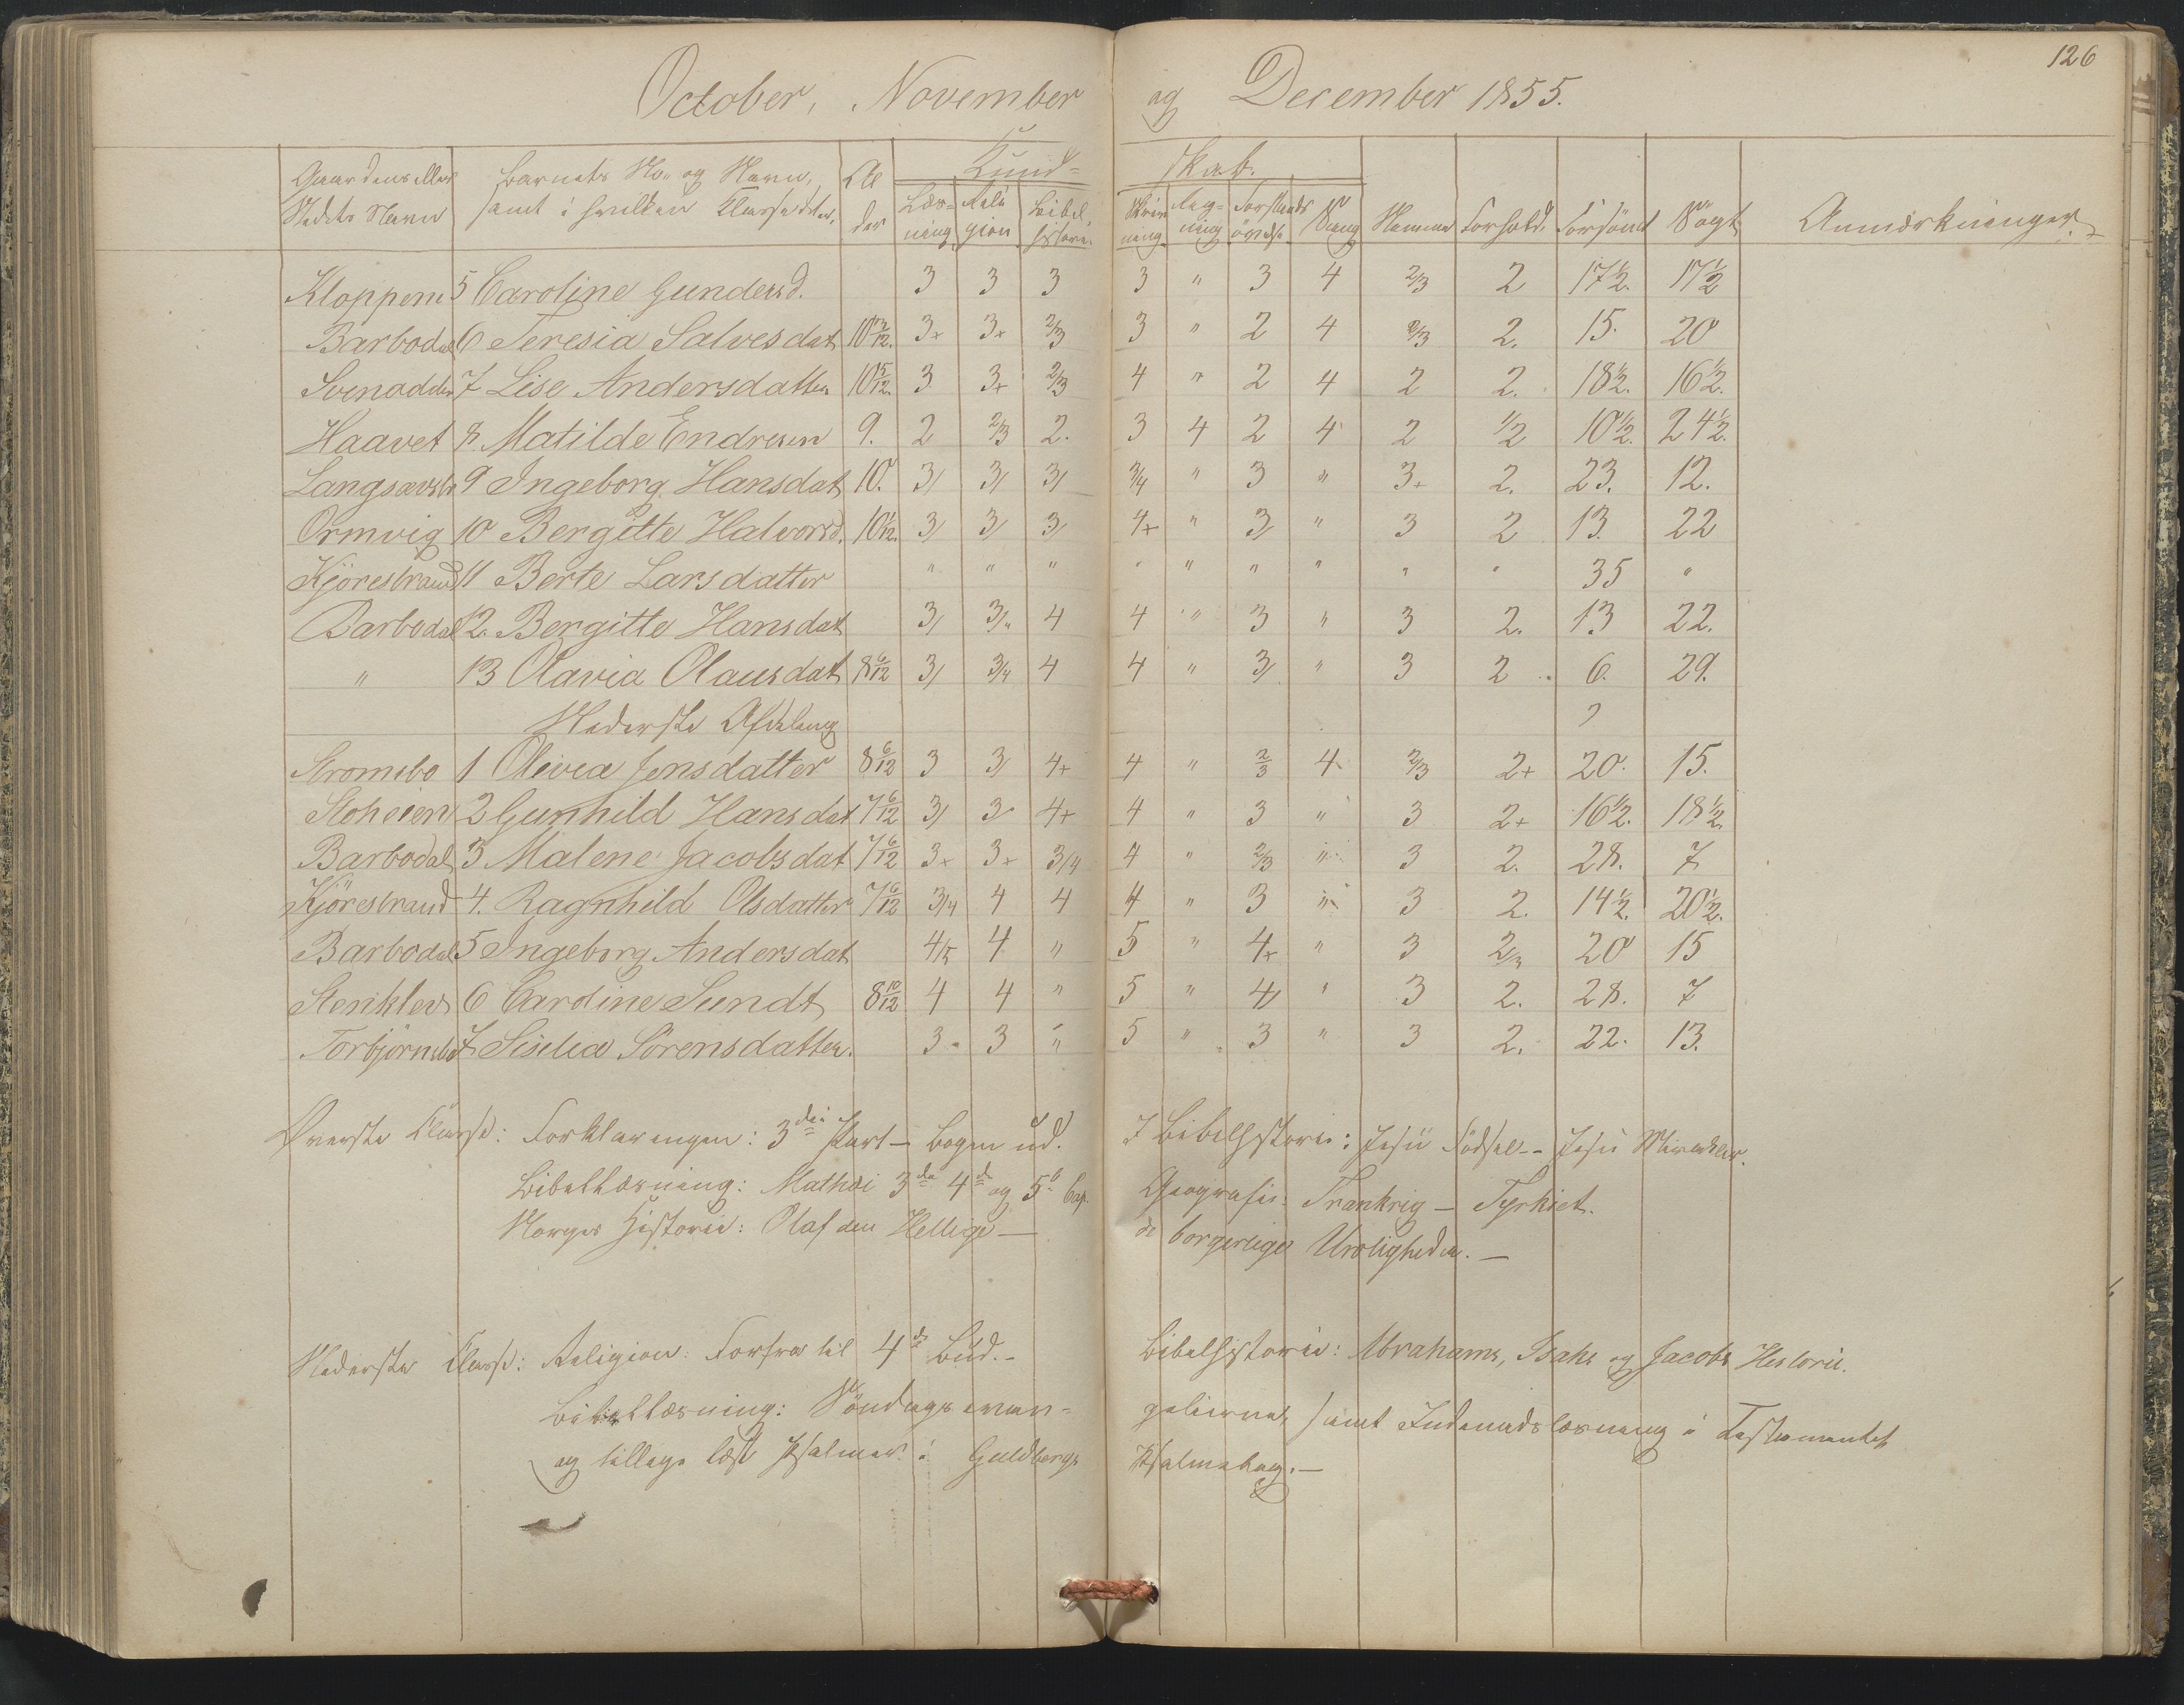 126
October, November og December 1855.
Gaardens eller Barnets No. og Navn, Al Kund= skab.
Stedets Navn samt i hvilken Classe det er. der Læs= Reli Bibel Skriv Reg= Forstands Sang Nemme Forhold. Forsömt Sögt Anmærkninger.
ning gion histori. ning ning övelse
Kloppene 5 Caroline Gundersd. 3 3 3 3 " 3 4 2/3 2 17 1/2. 17 1/2
Barbodal 6 Teresia Salvesdat 3+ 3+ 2/3 3 " 2 4 2/3 2. 15. 20
Svenodden 7 Lise Andersdatter 10 5/12. 3 3+ 2/3 4 " 2 4 2 2. 18 1/2. 16 1/2.
Haavet 8. Matilde Endresen 9. 2 2/3 2. 3 4 2 4 2 1/2 10 1/2. 24 1/2.
9 Ingeborg Hansdat 10. 3/ 3/ 3/ 3/4 " 3 " 3+ 2. 23. 12.
Ormvig 10 Bergitte Halvorsd. 10 1/12. 3/ 3/ 3/ 4+ " 3/ " 3 2 13. 22
Kjöresbrand 11 Berte Larsdatter " " " " " " " " " 35 "
Barbodal 12. Bergitte Hansdat 3/ 3/4 4 4 " 3 " 3 2. 13 22.
" 13 Olavia Olausdat 8 6/12 3/ 3/4 4 4 " 3/ " 3 2 6. 29.
Nederste Afdeling
Stromsbo 1 Olivia Jensdatter 8 6/12 3 3/ 4+ 4 " 2/3 4 2/3 2+ 20. 15.
Stoheien 2 Gunhild Hansdat 7 6/12 3/ 3 4+ 4 " 3 " 3 2+ 16 1/2. 18 1/2.
Barbodal 3 Malene Jacobsdat 7 6/12 3+ 3+ 3/4 4 " 2/3 " 3 2. 28. 7
Kjöresbrand 4. Ragnhild Olsdatter 7 6/12 3/4 4 4 4 " 3 " 3 2. 14 1/2. 20 1/2.
Barbodal 5 Ingeborg Andersdat 4/5 4 " 5 " 4+ " 3 2/3 20 15
Stenklev 6 Caroline Sundt 8 10/12 4 4 " 5 " 4/ " 3 2. 28. 7
Torbjörnsbo 7 Siselia Sörensdatter. 3 3 " 5 " 3 " 3 2. 22. 13.
Øverste Classe: Forklaringen: 3die Part – Bogen ud. I Bibelhistorie: Jesu Födsel – Jesu Mirakler.
Bibellæsning: Mathæi 3die 4de og 5te Cap. Geografie: Frankrig – Tyrkiet.
Norges Historie: Olaf den Hellige – de borgerlige Uroligheder. –
Nederste Classe: Religion: Forfra til 4de Bud. – Bibelhistorie: Abrahams, Isaks og Jacobs Historie.
Bibellæsning: Söndags evan= gelierne samt Indenadslæsning i Testamentet
og tillige læst Psalmer i Guldbergs Psalmebog. –